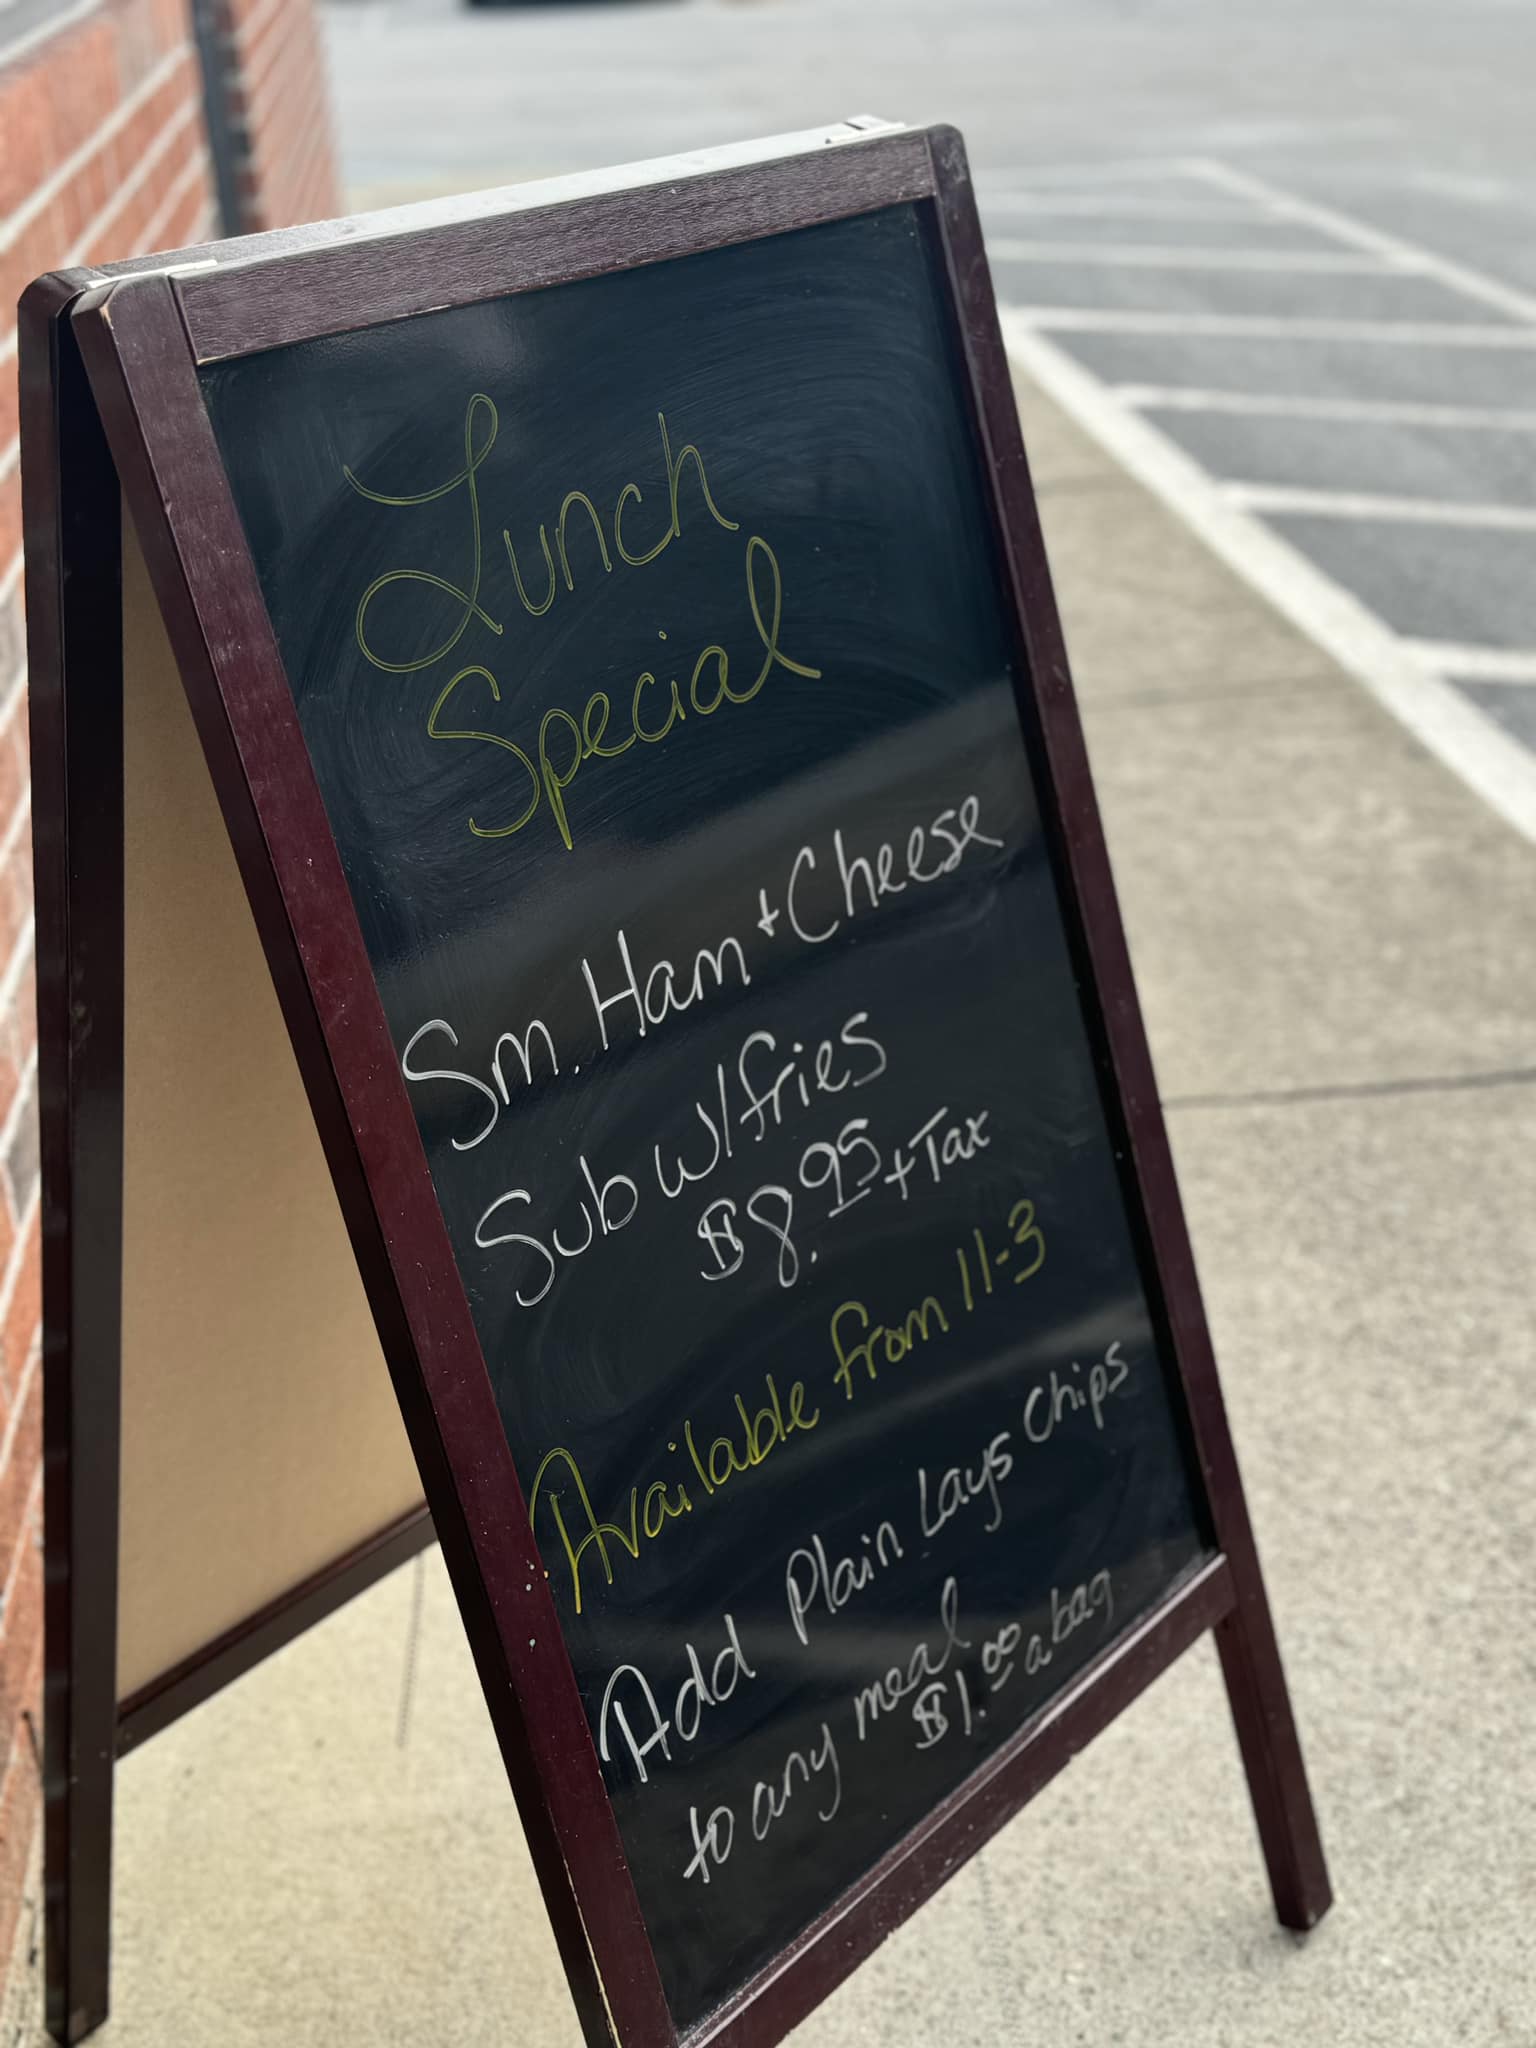 Lunch
Special
Sm. Ham + Cheese
Sub w/fries
$8.95 + Tax
Available from 11-3
Add Plain Lays Chips
to any meal
$1.00 a bag